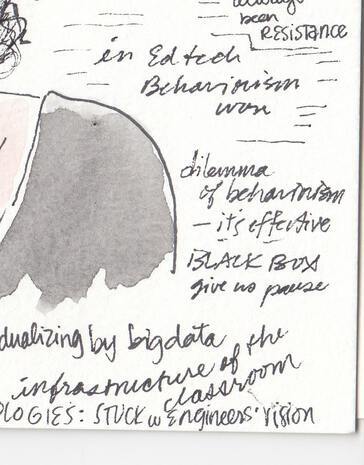 always
been
RESISTANCE
in Edtech
Behaviorism
won
dilemma
of behaviorism
– it's effective
BLACK BOX
give us pause
dualizing by bigdata
infrastructure of the
classroom
OLOGIES: STUCK w Engineers' vision